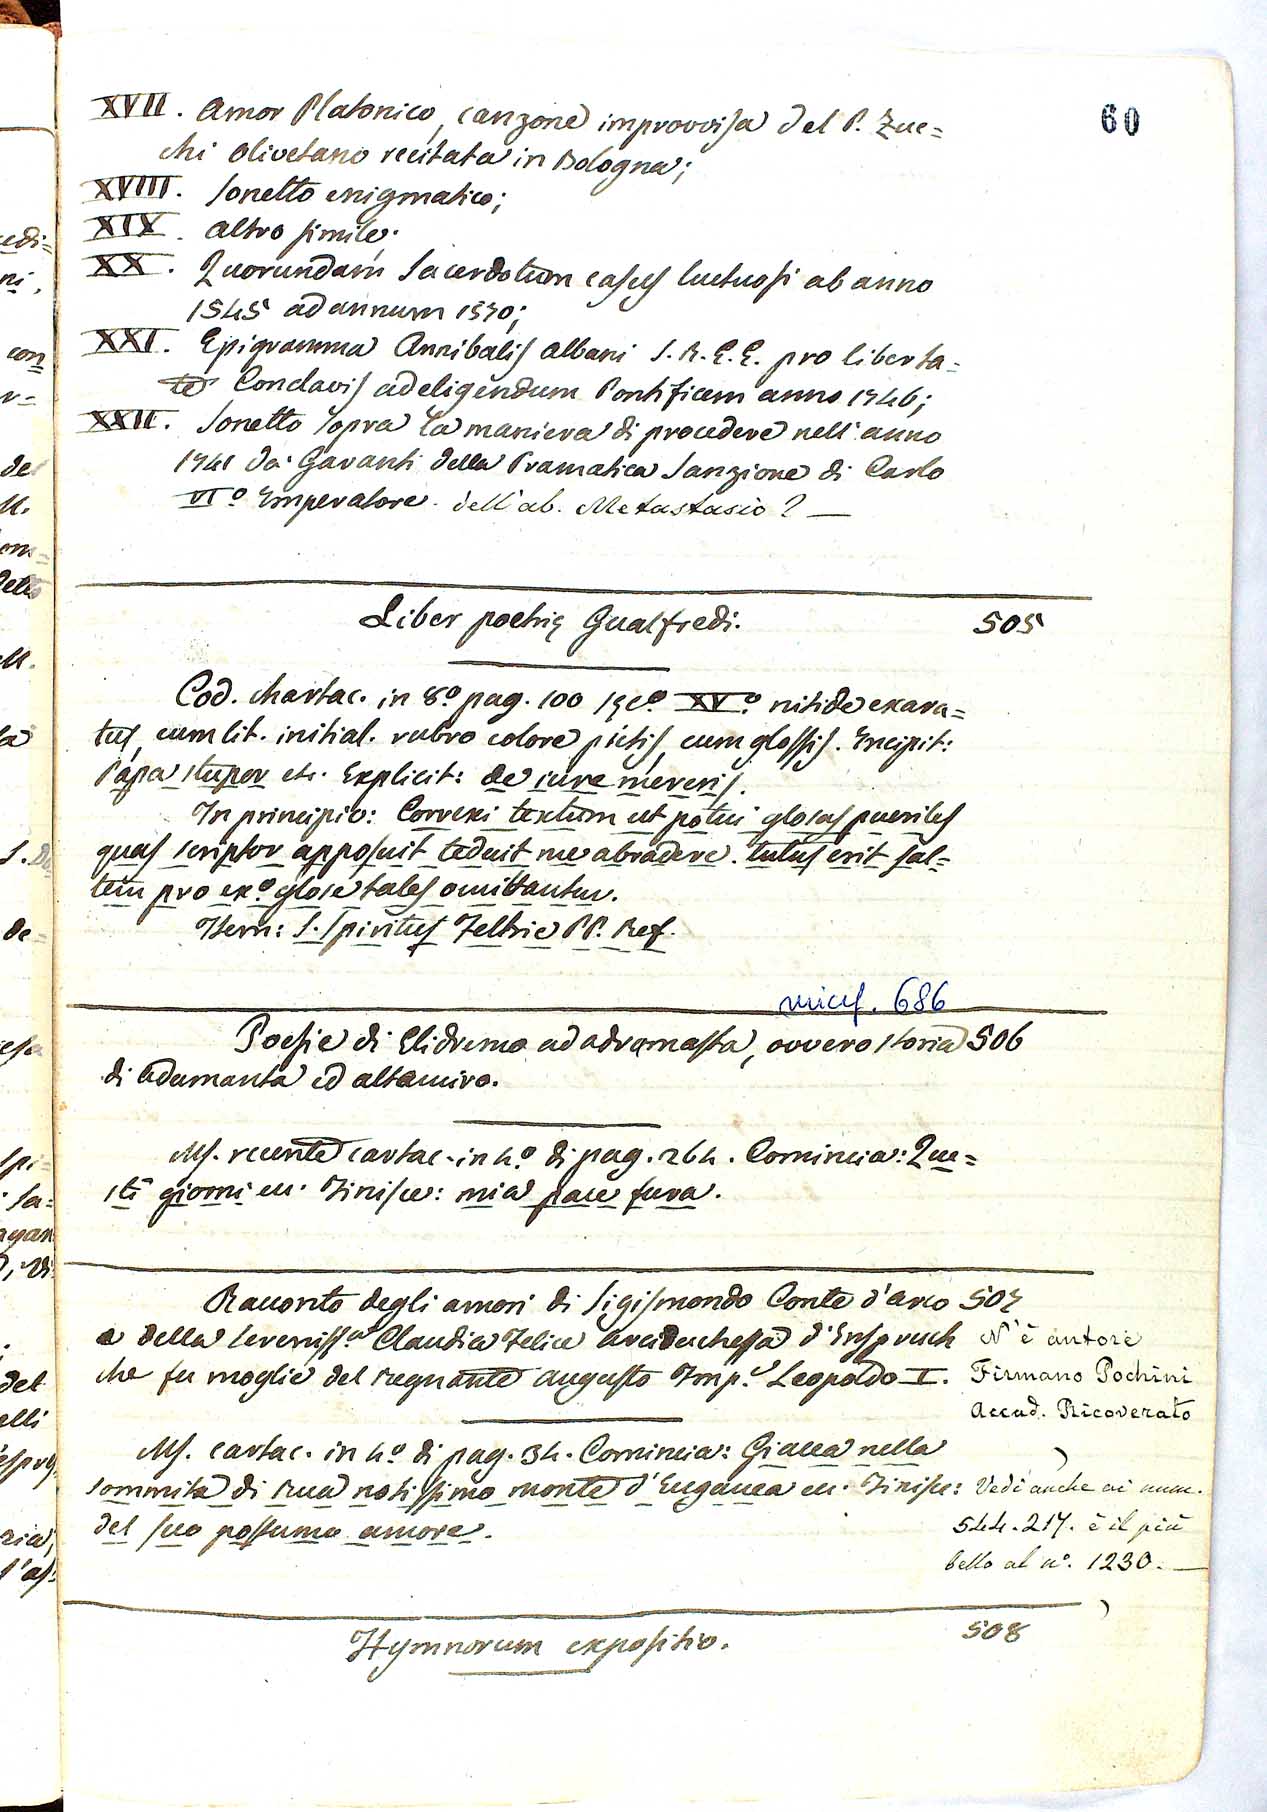 60
XVII. Amor Platonico, canzone improvvisa del P. Zuc=
chi olivetano recitata in Bologna;
XVIII. Sonetto enigmatico;
XIX. Altro simile.
XX. Quorundam Sacerdotum casus luctuosi ab anno
1545 ad annum 1570;
XXI. Epigramma Annibalis Albani S. R. E. E. pro liberta=
te Conclavis ad eligendum Pontificem anno 1746;
XXII. Sonetto sopra la maniera di procedere nell'anno
1741 da' Garanti della Pramatica Sanzione di Carlo
VIº Imperatore. dell'ab. Metastasio? —
Liber poetrię Gualfredi. 505
Cod. chartac. in 8º pag. 100 sęcº XVº nitide exara=
tus, cum lit. initial. rubro colore pictis, cum glossis. Incipit:
Papa stupor etc. Explicit: de iure mereris.
In principio: Correxi textum ut potui glosas pueriles
quas scriptor apposuit teduit me abradere. tutus erit sal=
tem pro exº glose tales omittantur.
Item: S. Spiritus Feltrie PP. Ref.
micf. 686
Poesie di Elidremo ad adramasta, ovvero storia 506
di Adamanta ed altamiro.
Ms. recente cartac. in 4º di pag. 264. Comincia: Que=
sti giorni ec. Finisce: mia pace fura.
Racconto degli amori di Sigismondo Conte d'Arco 507
e della sereniss.ª Claudia Felice Arciduchessa d'Inspruch
che fu moglie del regnante augusto Imp.e Leopoldo I.
N'è autore
Firmano Pochini
Accad. Ricoverato
Ms. cartac. in 4º di pag. 34. Comincia: Giacea nella
sommità di Rua notissimo monte d'Euganea ec. Finisce:
del suo possumo amore.
Vedi anche ai num.
544. 217. è il più
bello al nº. 1230. —
Hymnorum expositio. 508